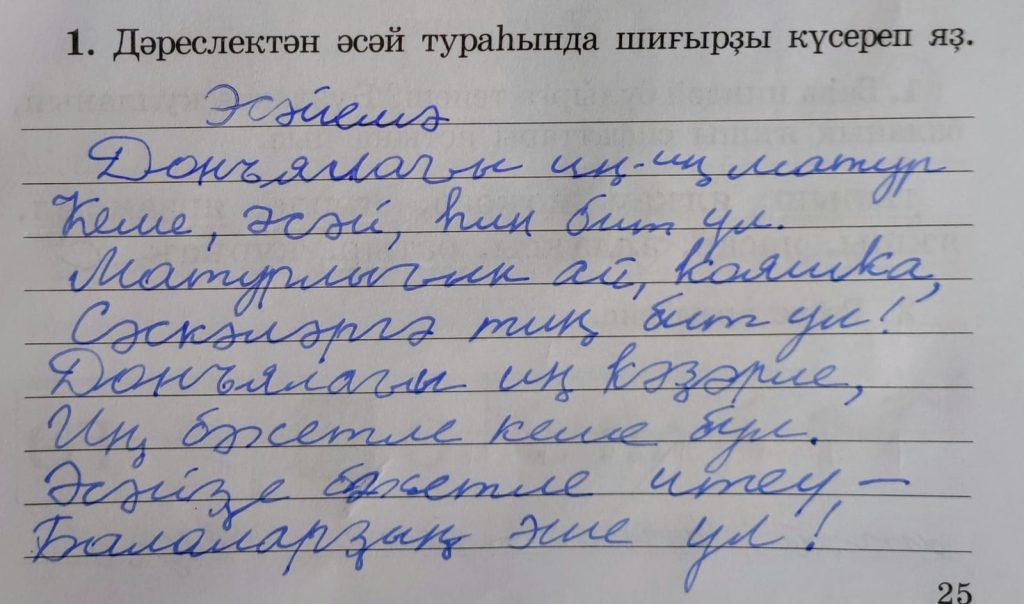 1. Дәреслектән әсәй тураһында шиғырҙы күсереп яҙ.
Әсәйемә
Донъялағы иң-иң матур
Кеше, әсәй, һин бит ул.
Матурлығың ай, ҡояшҡа,
Сәскәләргә тиң бит ул!
Донъялағы иң ҡәҙәрле,
Иң бәхетле кеше бул.
Әсәйҙе бәхетле итеү —
Балаларҙың эше ул!
25